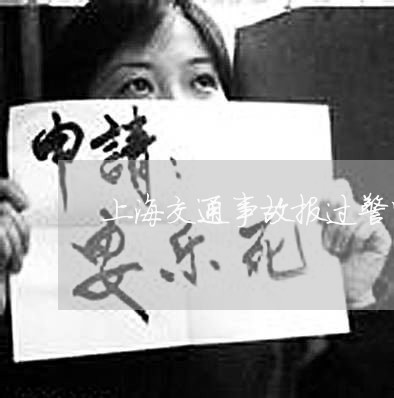 申請：
上海交通事故报过警
安乐死